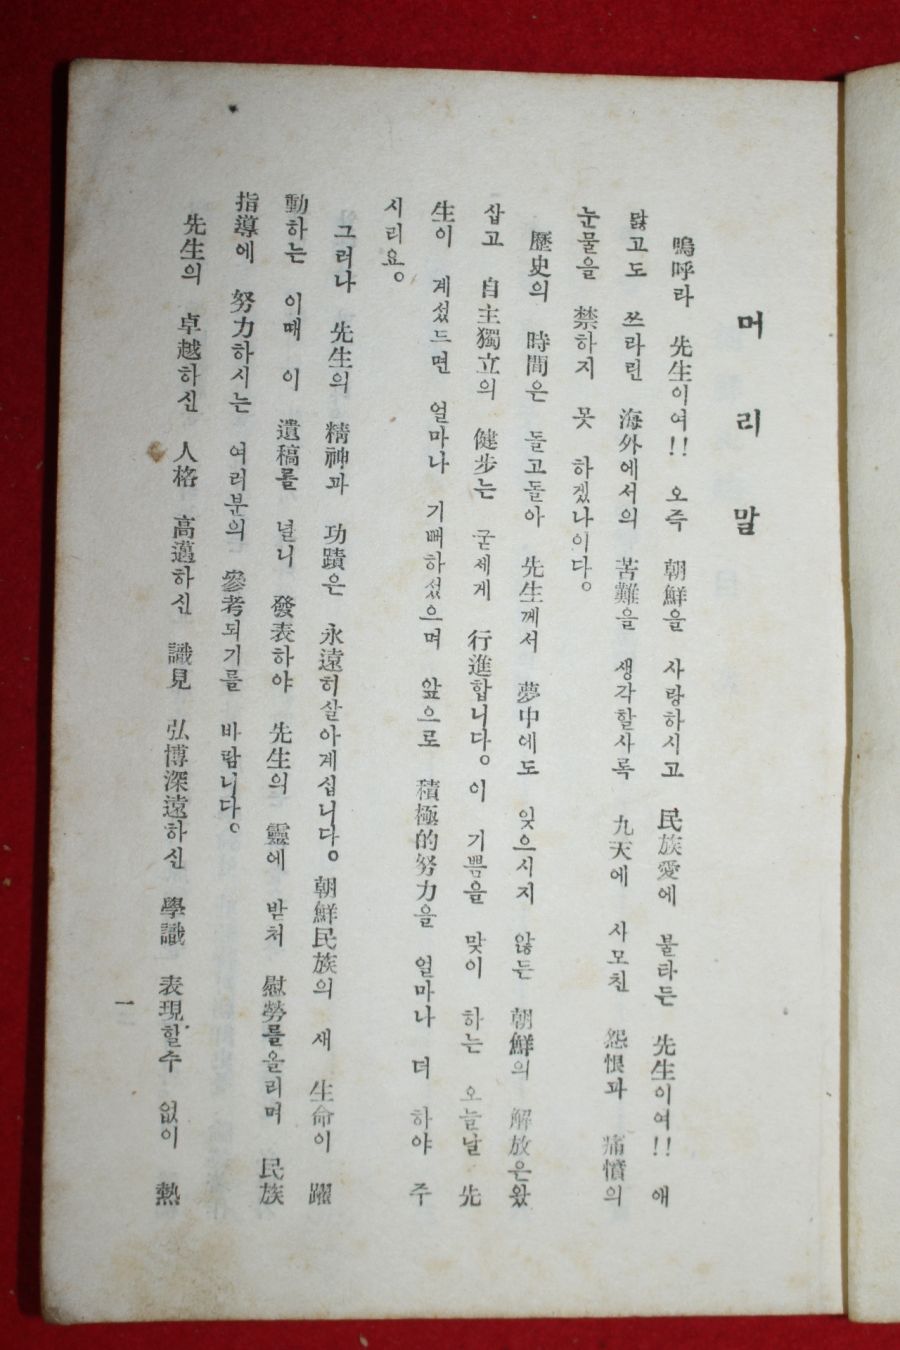 머리말
嗚呼라 先生이여!! 오즉 朝鮮을 사랑하시고 民族愛에 불타든 先生이여!! 애
닯고도 쓰라린 海外에서의 苦難을 생각할사록 九天에 사모친 怨恨과 痛憤의
눈물을 禁하지 못 하겠나이다。
歷史의 時間은 돌고돌아 先生께서 夢中에도 잊으시지 않든 朝鮮의 解放은왔
삽고 自主獨立의 健步는 굳세게 行進합니다。이 기쁨을 맞이 하는 오늘날 先
生이 계섰드면 얼마나 기뻐하섰으며 앞으로 積極的努力을 얼마나 더 하야 주
시리요。
그러나 先生의 精神과 功蹟은 永遠히살아게십니다。朝鮮民族의 새 生命이 躍
動하는 이때 이 遺稿를 널니 發表하야 先生의 靈에 받처 慰勞를올리며 民族
指導에 努力하시는 여러분의 參考되기를 바람니다。
先生의 卓越하신 人格 高邁하신 識見 弘博深遠하신 學識 表現할수 없이 熱
一